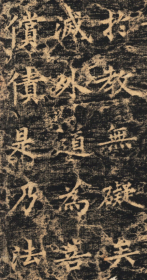 於教無礙共
滅外道為菩
償債是乃法